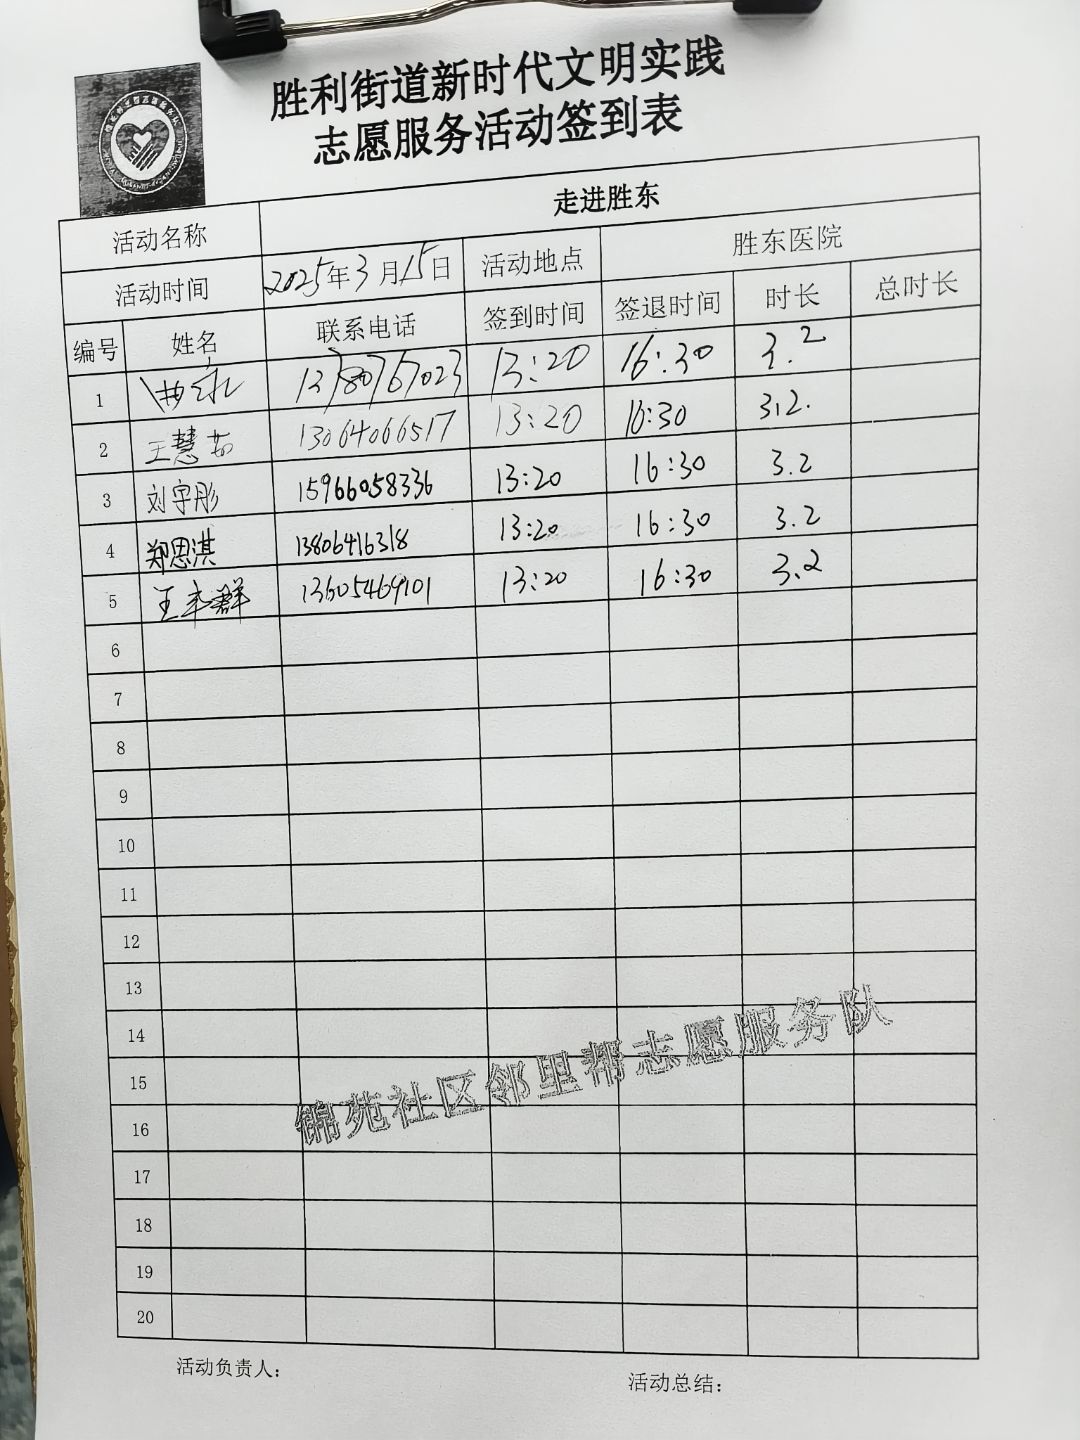 胜利街道新时代文明实践
志愿服务活动签到表
活动名称 走进胜东
活动时间 2025年3月15日 活动地点 胜东医院
编号 姓名 联系电话 签到时间 签退时间 时长 总时长
1 13780767023 13:20 16:30 3.2
2 王慧茹 13064066517 13:20 16:30 3.2.
3 刘宇彤 15966058336 13:20 16:30 3.2
4 郑思淇 13806416318 13:20 16:30 3.2
5 王 群 13605469101 13:20 16:30 3.2
6
7
8
9
10
11
12
13
14
15
16
17
18
19
20
锦苑社区邻里帮志愿服务队
活动负责人:
活动总结: